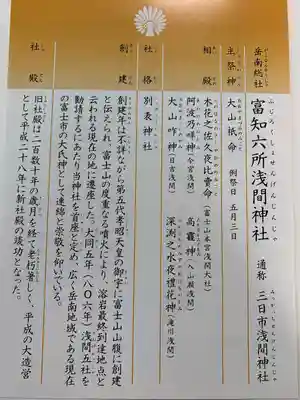 岳南総社
富知六所浅間神社 通称 三日市浅間神社
ふじろくしょせんげんじんじゃ
みっかいちせんげんじんじゃ
主祭神 大山祇命 例祭日 五月三日
相殿 木花之佐久夜比賣命(富士山本宮浅間大社)
阿波乃咩神(今宮浅間) 高龗神(入山瀬浅間)
大山咋神(日吉浅間) 深淵之水夜禮花神(滝川浅間)
社格 別表神社
創建 創建年は不詳ながら第五代孝昭天皇の御宇に富士山山腹に創建
と伝えられ、富士山の度重なる噴火により、溶岩最終到達地点と
云われる現在の地に遷座した。大同五年(八〇六年)浅間五社を
勧請するにあたり当神社を首座と定め、広く岳南地域である現在
の富士市の大氏神として連綿と崇敬を仰いでいる。
社殿 旧社殿は二百数十年の歳月を経て老朽著しく、平成の大造営
として平成二十八年に新社殿の竣功となった。